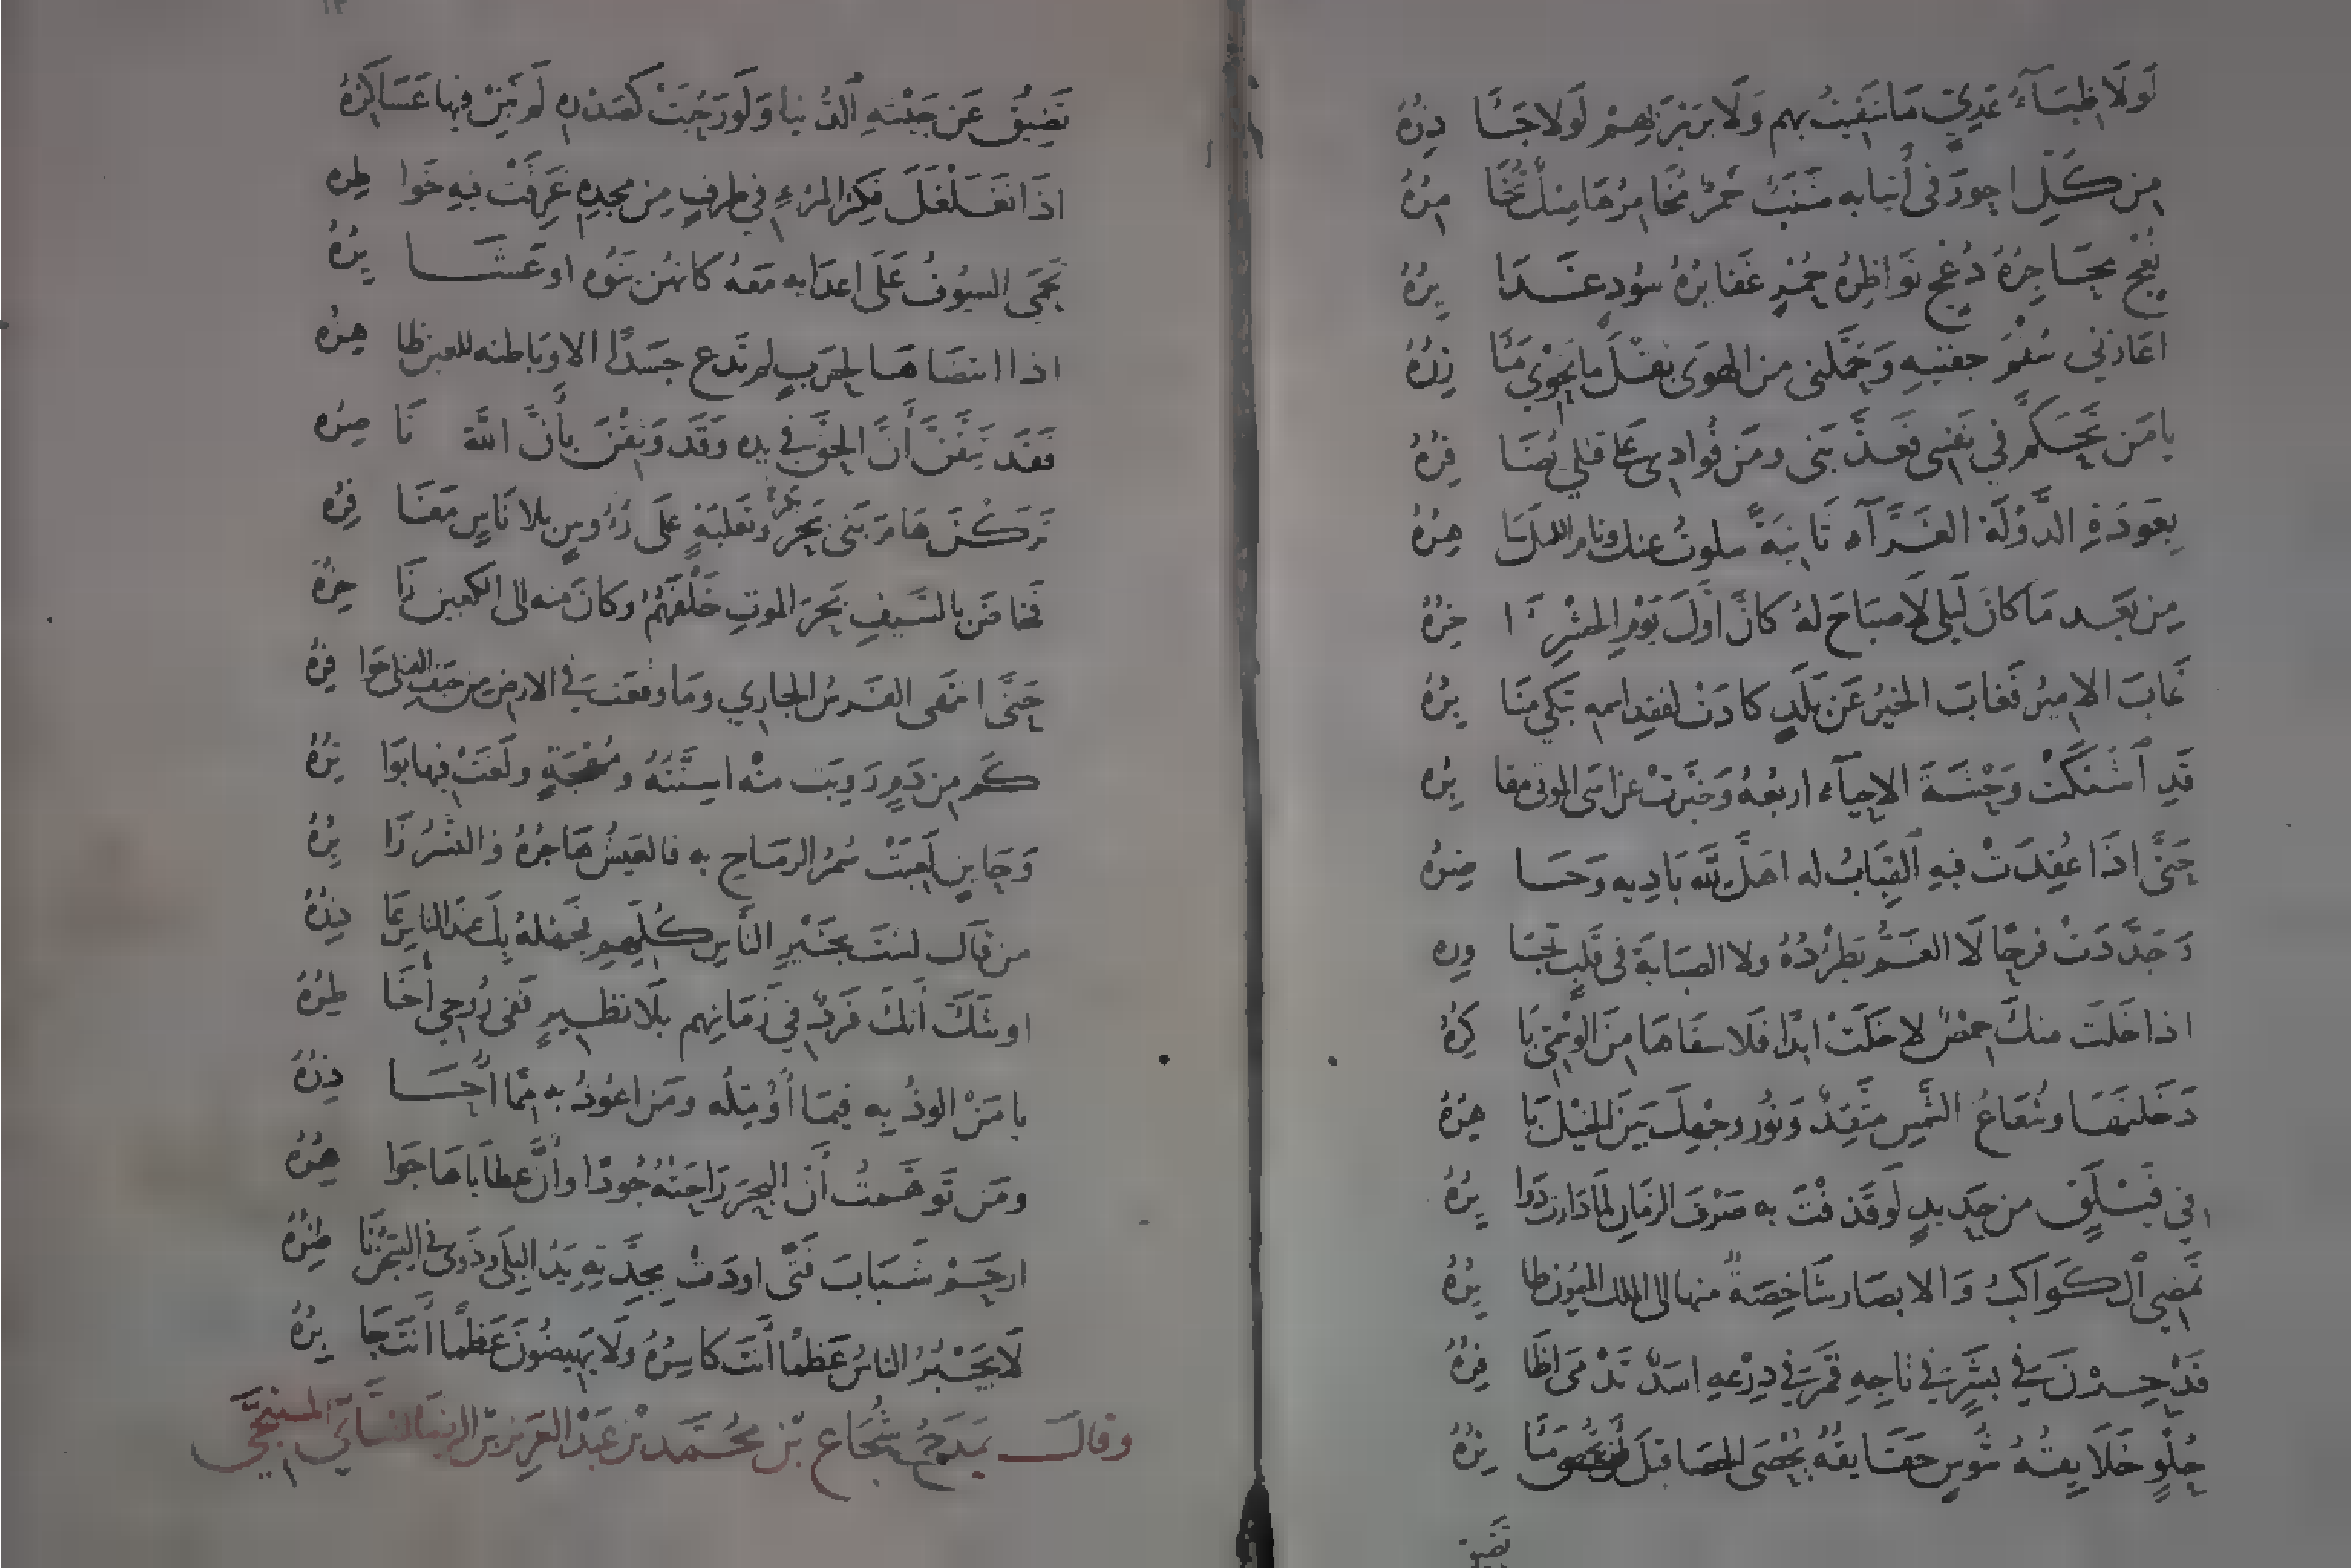 لَولَا ظِبَآءُ عَدِيٍّ مَا شَقِيتُ بهم وَلَا بِرَبْرَبِهِمْ لَولَا جَآ ذِرُهُ
مِن كُلِّ احورَ في أنيابه شَنَبٌ خَمْرٌ مُخَامِرُهَا مِسْكٌ تُخَا مِرُهُ
نُعْجٌ محَاجِرُهُ دُعْجٌ نَوَاظِرُهُ حُمْرٍ غَفَائِرُهُ سُودٍ غَدَا ئِرُهُ
اعَارَنِي سُقْمَ جفنيهِ وَحَمَّلني من الهوَى ثِقْلَ ما تَحْوِي مَآ زِرُهُ
يا مَن تَحَكَّمَ في نَفسي فَعَذَّبَني ومَن فُوادِي عَلى قتلي يُضَا فِرُهُ
بِعَودَةِ الدَّوْلَةِ الغَرَّآءِ ثَانِيَةً سلوتُ عنك ونام الليلَ سَا هِرُهُ
مِن بَعدِ مَا كانَ لَيلي لَا صبَاحَ لهُ كَانَ اوَّلَ يَوْمِ الحَشْرِ آ خِرُهُ
غابَ الاميرُ فَغابَ الخيرُ عَن بَلَدٍ كادَتْ لفقدِ اسمه تَبكي مَنَا بِرُهُ
قَدِ ٱشْتَكَتْ وَحْشَةَ الاحيآءِ اربُعُهُ وَخَبَّرتْ عن اسَى الموتى مقا بِرُه
حَتَّى اذَا عُقِدَتْ فيهِ القِبَابُ له اهَلَّ للّه بَادِيه وَحَا ضِرُهُ
وَجَدَّدَتْ فرحًا لَا الغَمُّ يَطْرُدُهُ ولا الصبَابةُ في قَلبٍ تجَا وِره
اذا خَلَت منكَ حمصٌ لا خَلَتْ ابدًا فَلا سقَاهَا مِنَ الوَسْمِيِّ بَا كِرُهُ
دَخَلتَهَا وشُعَاعُ الشمسِ متَّقِدٌ وَنُور وجْهِكَ بَينَ الخيْلِ بَا هِرُهُ
في فَيْلَقٍ من حَدِيدٍ لَو قَذفْتَ به صَرْفَ الزمَانِ لَمَا دَارَت دَوا ئِرُهُ
تَمْضِي ٱلكَوَاكبُ وَالابصَار شَاخِصَةٌ منها الى الملك الميمُون طا ئِرُهُ
قَدْ حِرْنَ في بَشَرٍ في تَاجِهِ قَمَرٌ في دِرْعهِ اسَدٌ تَدْمَى اظَا فِرُهُ
حُلْوٍ خَلَايِقُهُ شُوسٍ حَقَايقُهُ يُحْصَى الحصَا قبلَ ان تُحْصَى مَآ ثِرُهُ
تَضيق
تَضِيقُ عَن جَيْشهِ الدُّنيا وَلَو رَحُبَتْ كصَدْرِهِ لَم تَبِنْ فيها عَسَاكِرُهُ
اذَا تَغَلْغَلَ فِكرُ المرْءِ في طرفٍ مِن مجدِهِ غَرِقَتْ فيهِ خَوا طِره
تَحْمَى السيُوفُ عَلَى اعدَايه مَعهُ كانهُن بَنُوه او عَشَا ئِرُهُ
اذا انتضَاهَا لحَربٍ لم تَدع جسَدًا الا وبَاطنه للعين ظا هِرُه
فَقَد تَيَقَّنَّ أَنَّ الحقَّ في يدِه وَقَد وَثِقْنَ بأَنَّ اللّهَ نَا صِرُه
تَركْنَ هَامَ بَني بَحْرٍ وثعلبَةٍ عَلَى رُءُوسٍ بلا نَاسٍ مَغَا فِرُه
فخاضَ بالسَيفِ بَحْرَ الموتِ خَلْفَهُمُ وكانَ منه الى الكعبين زَا خِرُهُ
حَتَّى انتَهى الفَرسُ الجاري ومَا وقعَت في الارض من جيَف القتلى حَوا فِرُهُ
كَم مِن دَمٍ رَوِيَت منْه اسِنَّتُهُ ومُهْجَةٍ ولَغَتْ فيها بَوَا تِرُهُ
وَحَاينٍ لَعِبَتْ سُمْرُ الرمَاحِ به فالعَيشُ هَاجِرُهُ والنسْرُ زَا ئِرُهُ
مَن قَال لستَ بخَيْرِ النَّاسِ كُلِّهِمِ فجهْلُهُ بِكَ عندَ الناسِ عَا ذِرُهُ
او شَكَّ أنكَ فَردٌ في زَمَانِهم بلَا نظيرٍ ففي رُوحي أُخَا طِرُهُ
يا مَنْ الوذُ بِه فيمَا أُؤَمِّلُه ومَن اعُوذُ به مِمَّا أُحَا ذِرُهُ
ومَن تَوهَّمتُ أَنَّ البحْرَ رَاحَتُهُ جُودًا وأنَّ عطَايَاهَا جَوَا هِرُهُ
ارحَمْ شَبَابَ فَتًى اودَتْ بِجِدَّتِهِ يَدُ البِلَى وذَوَى في السِّجْن نَا ضِرُهُ
لَا يَجْبُرُ الناسُ عَظْمًا أَنتَ كاسِرُهُ ولَا يَهِيضُونَ عَظْمًا أَنتَ جَا بِرُهُ
وقالَ يَمدَحُ شُجَاع بْن مُحَمَّد بْن عَبْد العَزِيز بْن الرضَا الطَّائي المنبجيَّ